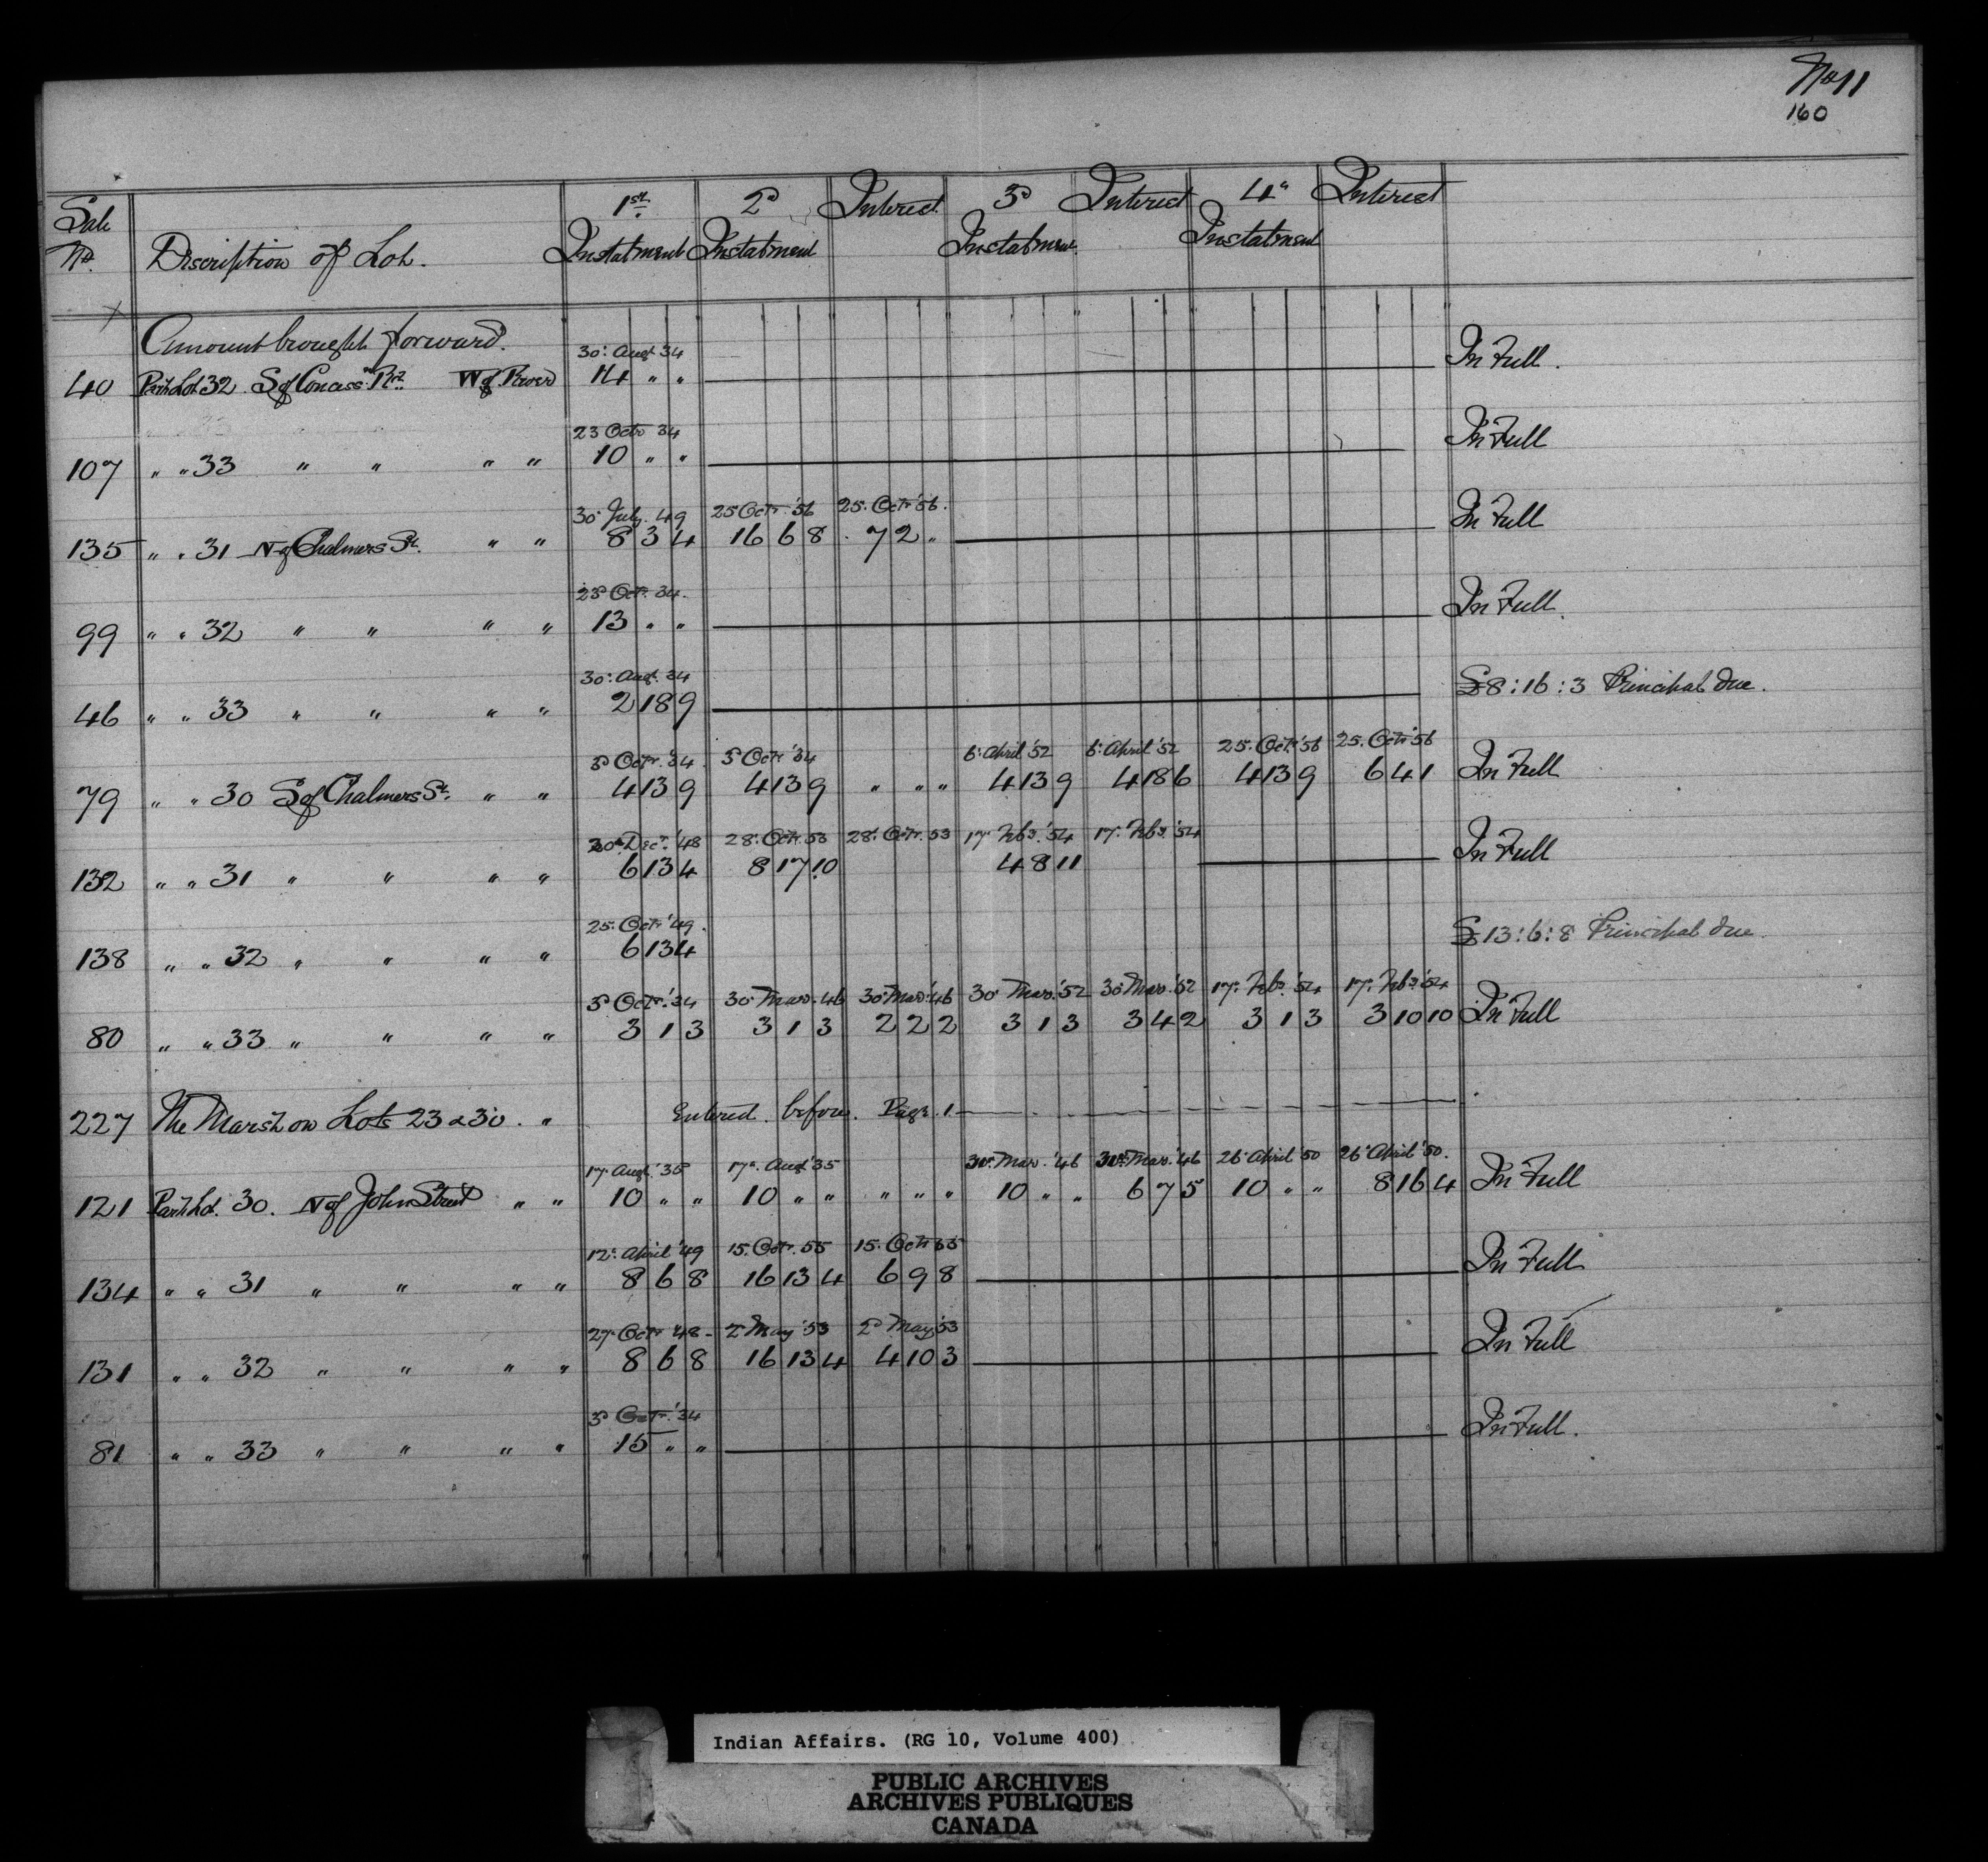 No 11
160
Sale No. Discription of Lot. 1st Instalment 2d Instalment Interest 3d Instalment Interest 4th Instalment Interest
Amount brought forward.
30th Augt 34
40 Part Lot 32 S of Concess n Rd. W of River 14 " " In Full.
23 Octr 34
107 " " 33 " " " " 10 " " In Full
30 July. 49 25 Octr. '56 25. Octr '56.
135 " " 31 N of Chalmers St. " " 8 3 4 16 6 8 7 2 " In Full
23d Octr. 34.
99 " " 32 " " " " 13 " " In Full.
30th Augt. 34
46 " " 33 " " " " 2 18 9 £8:16:3 Principal due.
3d Octr. '34. 3d Octr '34 6th April '52 6th April '52 25. Octr. '56 25. Octr '56
79 " " 30 S of Chalmers St. " " 4 13 9 4 13 9 " " " 4 13 9 4 18 6 4 13 9 6 4 1 In Full
30th Decr. '48 28th Octr. 53 28th Octr. 53 17th Feby. '54 17th Feby. '54
132 " " 31 " " " " 6 13 4 8 17 10 4 8 11 In Full
25th Octr '49.
138 " " 32 " " " " 6 13 4 £13:6:8 Principal due.
3d Octr. '34 30th Mar. 46 30th Mar. '46 30th Mar. '52 30th Mar. '52 17th Feby. '54 17th Feby. '54
80 " " 33 " " " " 3 1 3 3 1 3 2 2 2 3 1 3 3 4 2 3 1 3 3 10 10 In Full
227 The Marsh on Lots 23 & 30. " Entered before. Page. 1
17th Augt. '35 17th Augt '35 30th Mar. '46 30th Mar. '46 26th April '50 26th April '50.
121 Part Lot. 30. N of John Street " " 10 " " 10 " " " " " 10 " " 6 7 5 10 " " 8 16 4 In Full
12th April '49 15. Octr. 55 15. Octr 55
134 " " 31 " " " " 8 6 8 16 13 4 6 9 8 In Full
27th Octr '48 2d May '53 2d May '53
131 " " 32 " " " " 8 6 8 16 13 4 4 10 3 In Full
3d Octr. '34
81 " " 33 " " " " 15 " " In Full.
Indian Affairs. (RG 10, Volume 400)
PUBLIC ARCHIVES
ARCHIVES PUBLIQUES
CANADA